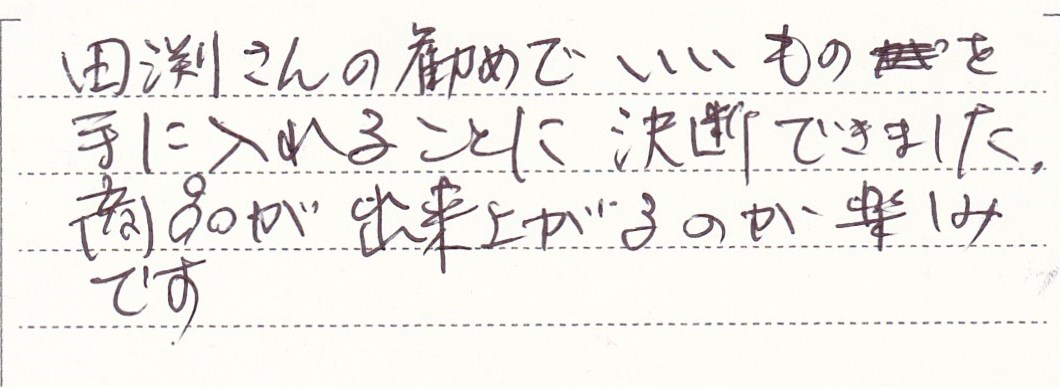 田渕さんの勧めでいいものを
手に入れることに決断できました。
商品が出来上がるのが楽しみ
です